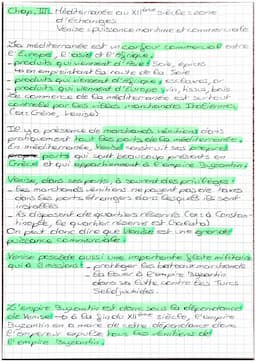 Chap. III Méditerranée au XIIème siècle: zone
d'échanges
Venise: puissance maritime et commerciale
La méditerranée est un carfour commercial entre
l'Europe, l'asie et l'Afrique.
- produits qui viennent d'Asie: Soie, épices
→ en empreintant la route de la Soie
- produits qui viennent d'Afrique: esclaves, or
- produits qui viennent d'Europe: vin, tissus, bois
Le commerce de la méditerranée est surtout
contrôlé par les villes marchandes Italiennes,
(ex: Gêne, Venise)
IL y a présence de marchands vénitiens dans
pratiquement tout les ports de la méditerranée.
En méditerranée, Venise construit ses propres
ports qui sont beaucoup présents en
Grèce et qui appartiennent à l'Empire Byzantin.
Venise, dans ses ports, à souvent des privilèges:
- Les marchands vénitiens ne payent pas de taxes
dans les ports étrangers dans lesquels ils sont
- Ils disposent de quartiers réservés (ex: à Constan-
tinople, le quartier réservé est
On peut donc dire que Venise est une grande
puissance commerciale.
Venise possède aussi une importante flotte militaire
qui à 2 missions: - protéger les bateaux marchands
- aider à l'Empire Byzantin
dans sa lutte contre les Turcs
Seldjoukides.
L'empire Byzantin est donc sous la dépendance
de Venise → à la fin du XIIème siècle, l'Empire
Byzantin en a marre de cette dépendance donc
l'empereur expulse tous les vénitiens de
l'empire Byzantin.